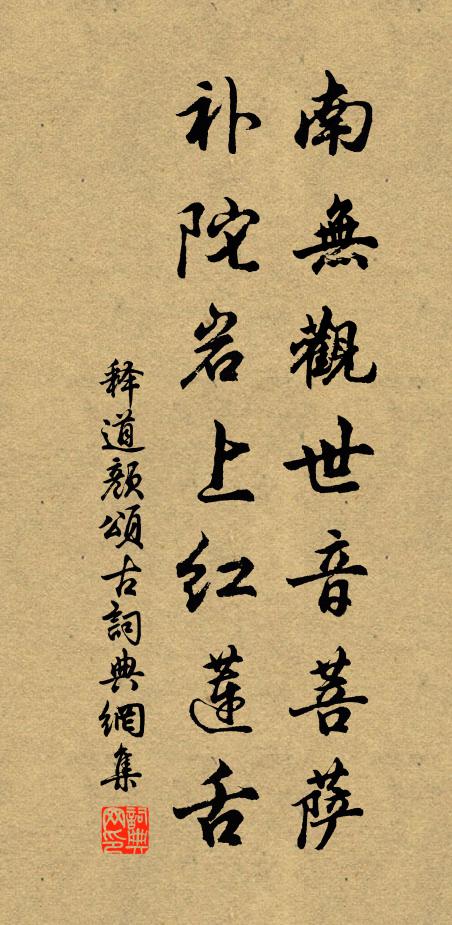 南無觀世音菩薩
补陀岩上红蓮舌
释道颜頌古詞典網集
詞典网印